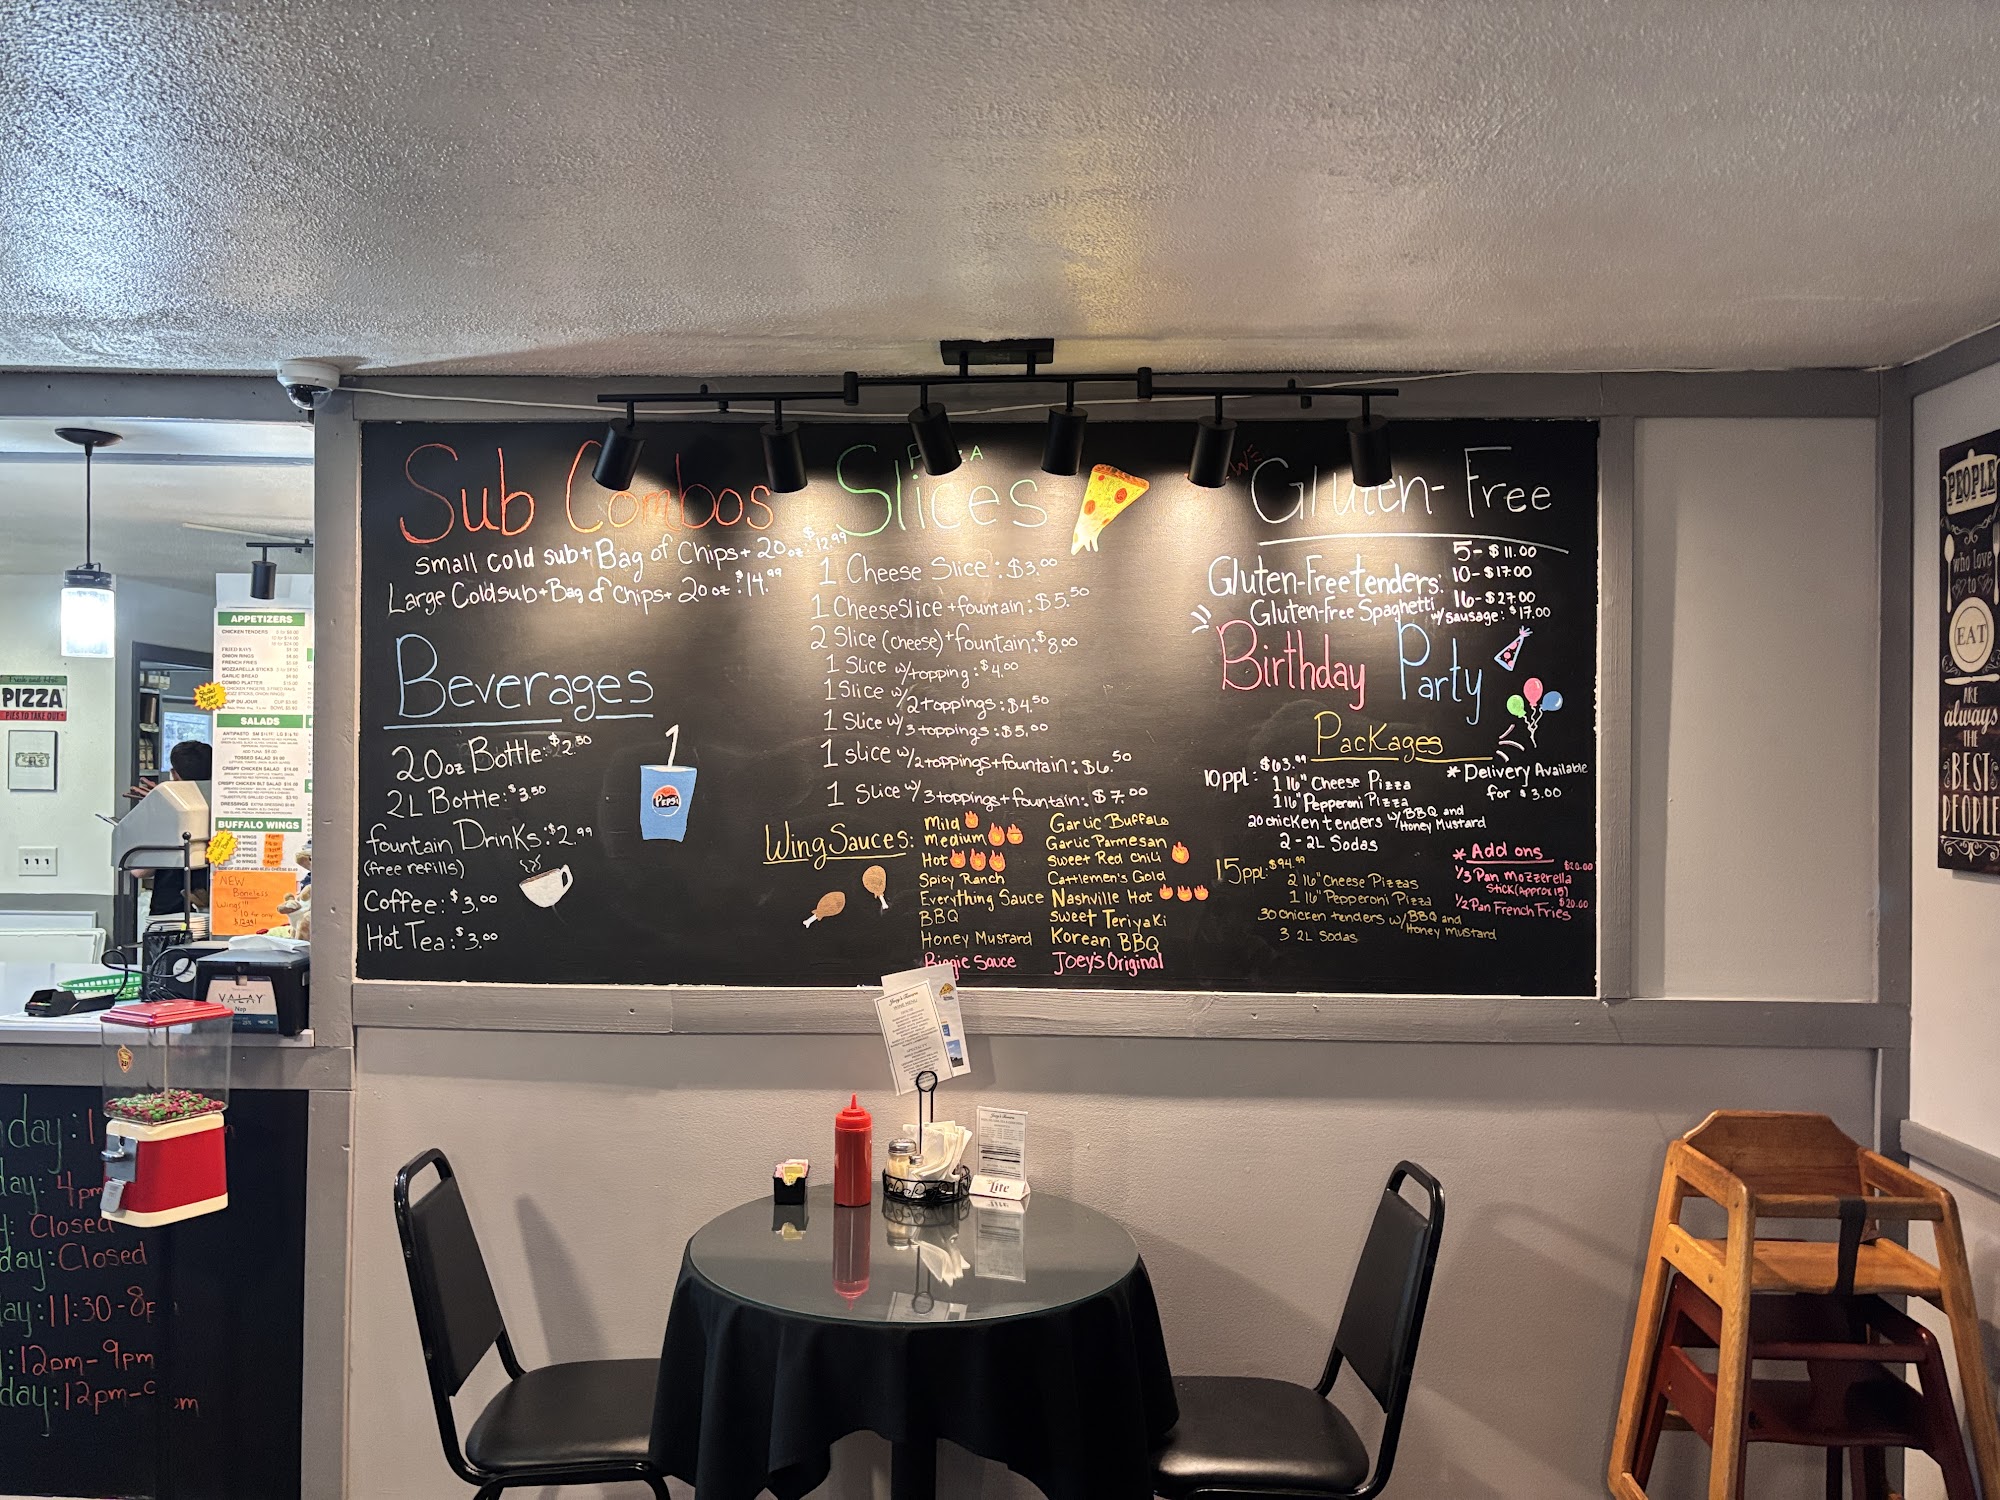 Sub Combos
small cold sub + Bag of Chips + 20oz: $12.99
Large Cold sub + Bag of Chips + 20oz: $14.99
Beverages
20oz Bottle: $2.50
2L Bottle: $3.50
fountain Drinks: $2.99
(free refills)
Coffee: $3.00
Hot Tea: $3.00
PEPSI
Slices
1 Cheese Slice: $3.00
1 Cheese Slice + fountain: $5.50
2 Slice (cheese) + fountain: $8.00
1 Slice w/ topping: $4.00
1 Slice w/ 2 toppings: $4.50
1 Slice w/ 3 toppings: $5.00
1 slice w/ 2 toppings + fountain: $6.50
1 Slice w/ 3 toppings + fountain: $7.00
Wing Sauces:
Mild
Medium
Hot
Spicy Ranch
Everything Sauce
BBQ
Honey Mustard
Biggie Sauce
Garlic Buffalo
Garlic Parmesan
Sweet Red Chili
Cattlemen's Gold
Nashville Hot
Sweet Teriyaki
Korean BBQ
Joey's Original
Gluten-Free
Gluten-Free tenders: 5 - $11.00
10 - $17.00
16 - $27.00
Gluten-Free Spaghetti w/ sausage: $17.00
Birthday Party
Packages
10ppl: $63.99
1 16" Cheese Pizza
1 16" Pepperoni Pizza
20 chicken tenders w/ BBQ and Honey Mustard
2 - 2L Sodas
15ppl: $94.99
2 16" Cheese Pizzas
1 16" Pepperoni Pizza
30 chicken tenders w/ BBQ and Honey Mustard
3 2L Sodas
* Delivery Available
for $3.00
* Add ons
1/3 Pan Mozzerella $20.00
Stick (Approx 15)
1/2 Pan French Fries $20.00
PIZZA
PIES TO TAKE OUT
APPETIZERS
CHICKEN TENDERS
ONION RINGS
FRENCH FRIES
MOZZARELLA STICKS
GARLIC BREAD
COMBO PLATTER
SALADS
ANTIPASTO
TOSSED SALAD
CRISPY CHICKEN SALAD
CRISPY CHICKEN BLT SALAD
DRESSINGS
BUFFALO WINGS
NEW
Boneless
Wings!!!
VALAY
day: 1
day: 4pm
Closed
day: Closed
day: 11:30 - 8
: 12pm - 9pm
day: 12pm -
Lite
PEOPLE
who love
to
EAT
ARE
always
THE
BEST
PEOPLE